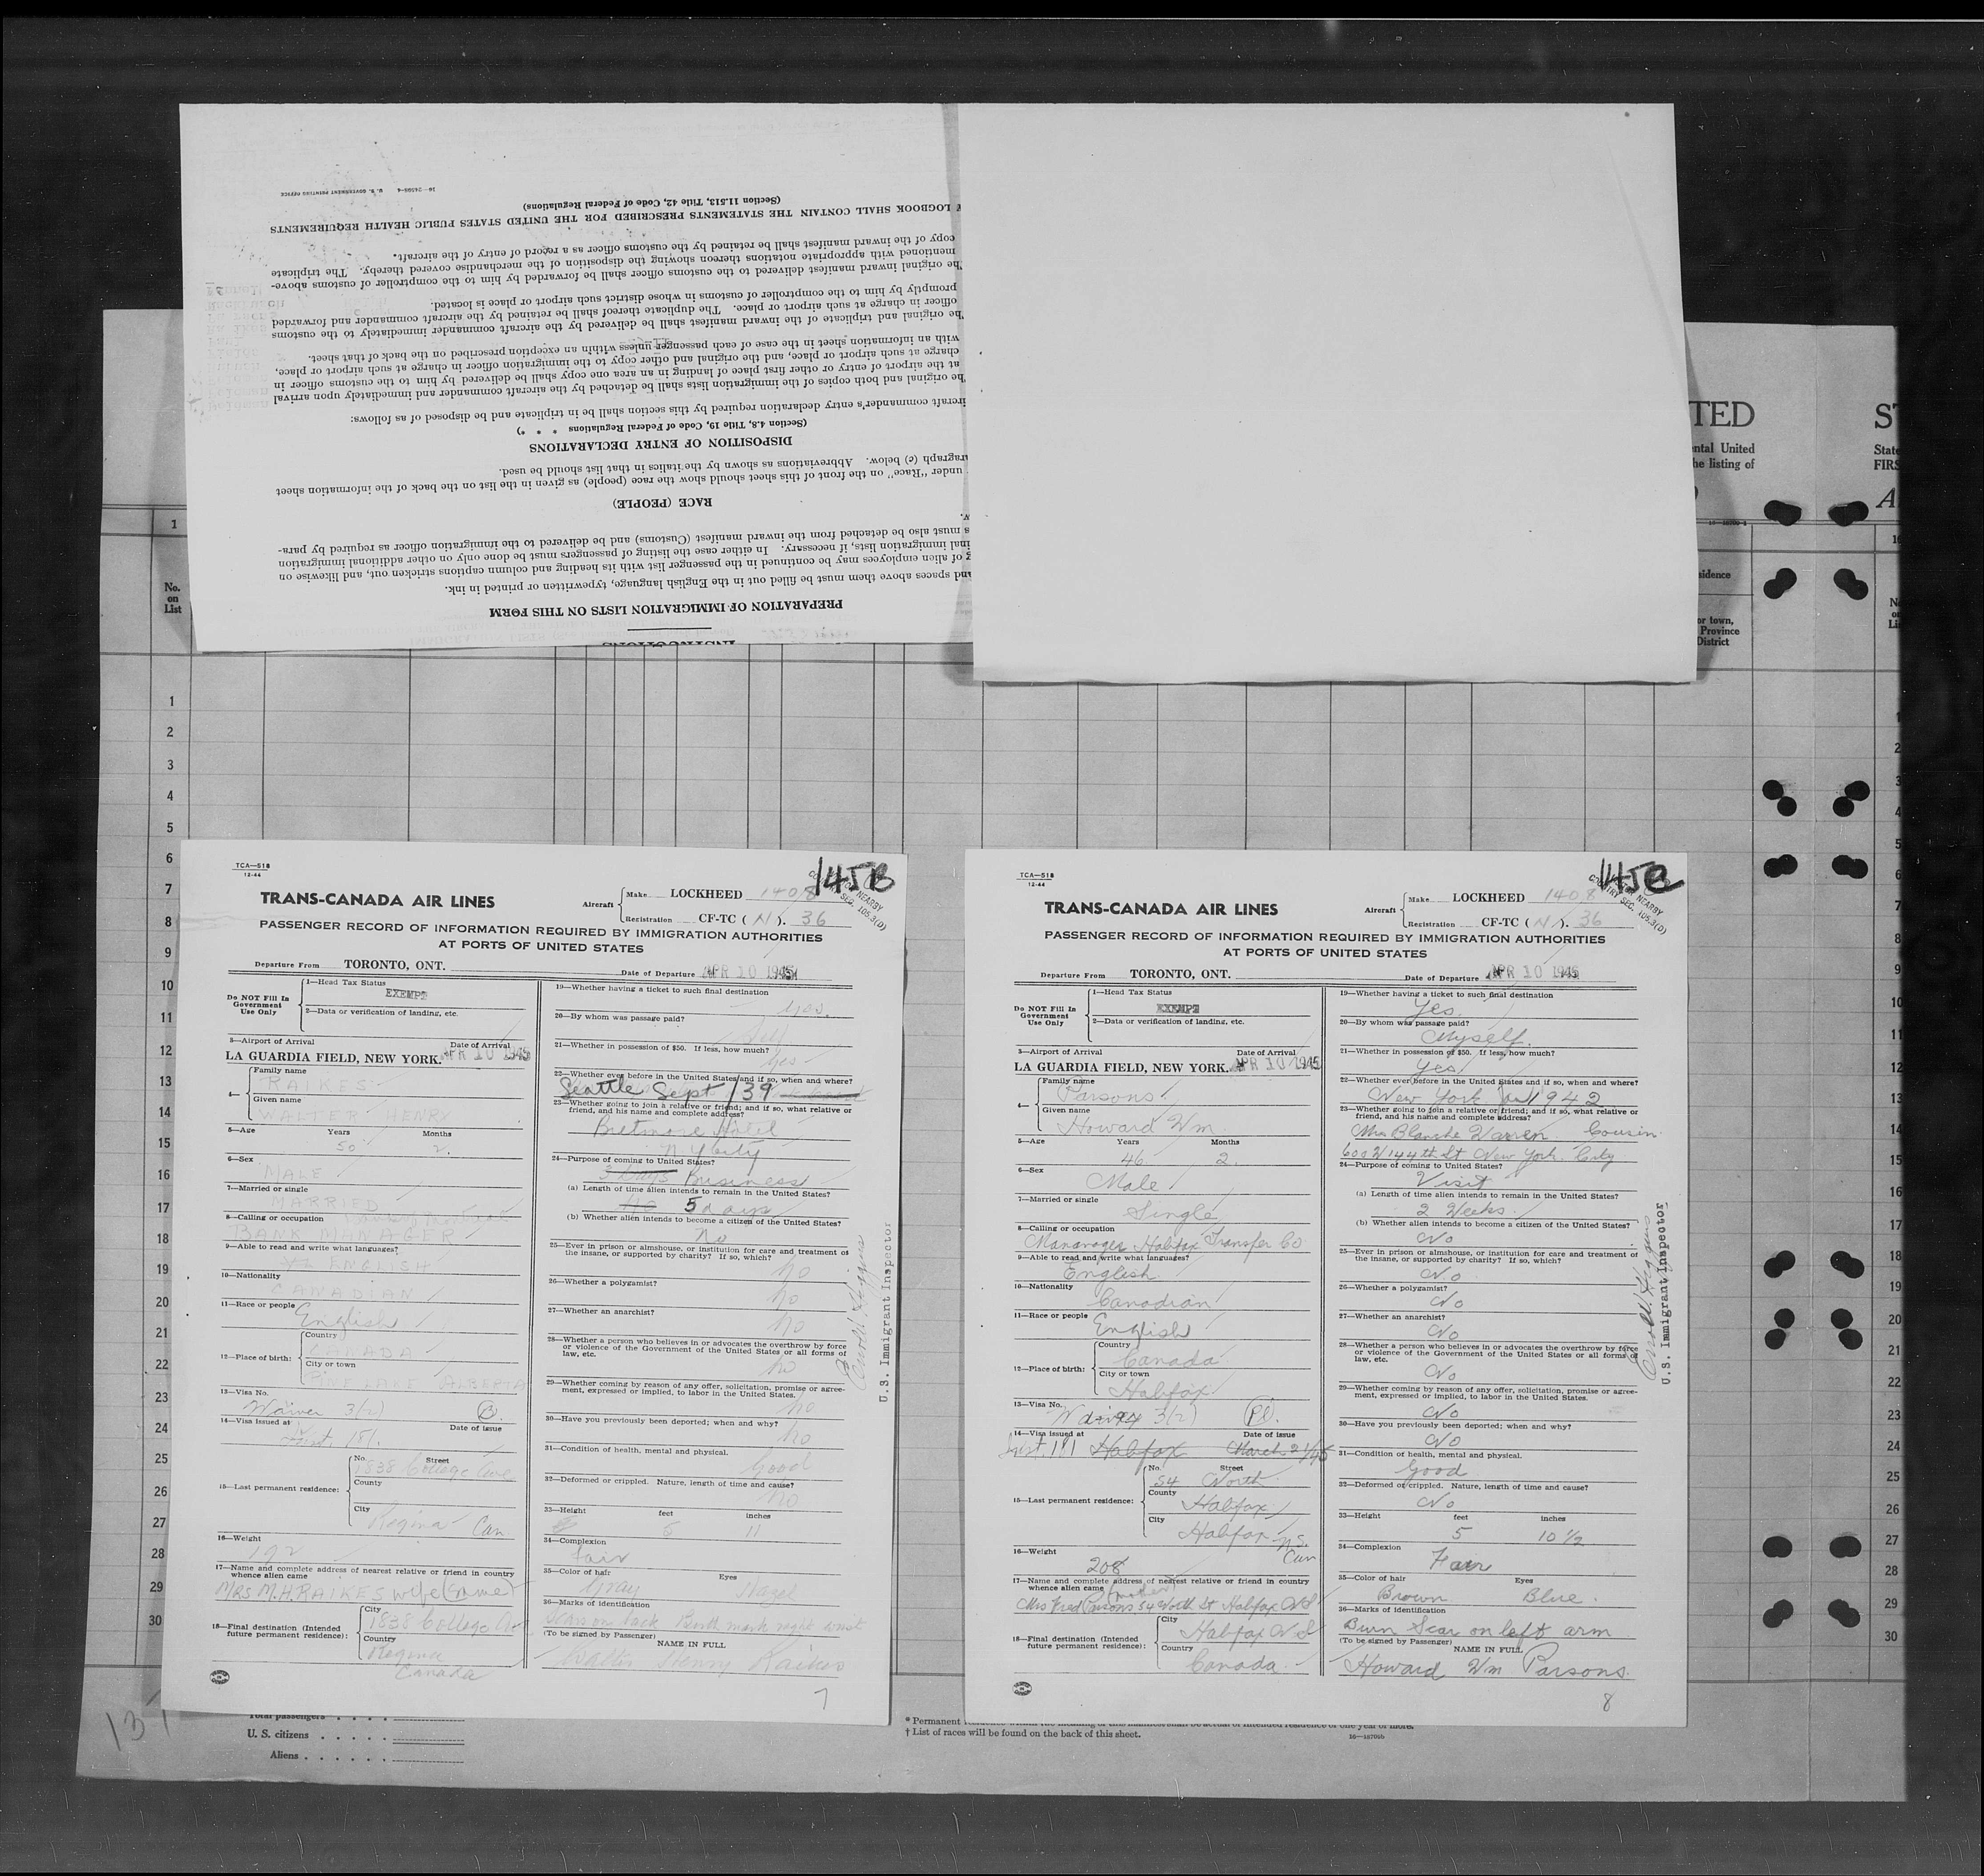 16—24566-4 U. S. GOVERNMENT PRINTING OFFICE
(Section 11.513, Title 42, Code of Federal Regulations)
LOGBOOK SHALL CONTAIN THE STATEMENTS PRESCRIBED FOR THE UNITED STATES PUBLIC HEALTH REQUIREMENTS
copy of the inward manifest shall be retained by the customs officer as a record of entry of the aircraft.
mentioned with appropriate notations thereon showing the disposition of the merchandise covered thereby. The triplicate
he original inward manifest delivered to the customs officer shall be forwarded by him to the comptroller of customs above-
promptly by him to the comptroller of customs in whose district such airport or place is located.
officer in charge at such airport or place. The duplicate thereof shall be retained by the aircraft commander and forwarded
he original and triplicate of the inward manifest shall be delivered by the aircraft commander immediately to the customs
with an information sheet in the case of each passenger unless within an exception prescribed on the back of that sheet.
charge at such airport or place, and the original and other copy to the immigration officer in charge at such airport or place,
at the airport of entry or other first place of landing in an area one copy shall be delivered by him to the customs officer in
he original and both copies of the immigration lists shall be detached by the aircraft commander and immediately upon arrival
ircraft commander's entry declaration required by this section shall be in triplicate and be disposed of as follows:
(Section 4.8, Title 19, Code of Federal Regulations * * *)
DISPOSITION OF ENTRY DECLARATIONS
ragraph (c) below. Abbreviations as shown by the italics in that list should be used.
under "Race" on the front of this sheet should show the race (people) as given in the list on the back of the information sheet
RACE (PEOPLE)
w.
s must also be detached from the inward manifest (Customs) and be delivered to the immigration officer as required by para-
inal immigration lists, if necessary. In either case the listing of passengers must be done only on other additional immigration
g of alien employees may be continued in the passenger list with its heading and column captions stricken out, and likewise on
and spaces above them must be filled out in the English language, typewritten or printed in ink.
PREPARATION OF IMMIGRATION LISTS ON THIS FORM
INSTRUCTIONS
TED
ental United
he listing of
ST
State
FIRS
A
1
16
No.
on
List
sidence
or town,
Province
District
1
2
3
4
5
6
7
8
9
10
11
12
13
14
15
16
17
18
19
20
21
22
23
24
25
26
27
28
29
30
TCA—518
12-44
145B
TRANS-CANADA AIR LINES
Aircraft Make LOCKHEED 1408
Registration CF-TC ( N ). 36
NEARBY
COUNTRY SEC. 105.3(D)
PASSENGER RECORD OF INFORMATION REQUIRED BY IMMIGRATION AUTHORITIES
AT PORTS OF UNITED STATES
Departure From TORONTO, ONT. Date of Departure APR 10 1945
Do NOT Fill In Government Use Only
1—Head Tax Status
EXEMPT
2—Data or verification of landing, etc.
3—Airport of Arrival Date of Arrival
LA GUARDIA FIELD, NEW YORK. APR 10 1945
4— Family name
RAIKES
Given name
WALTER HENRY
5—Age Years Months
50 2
6—Sex
MALE
7—Married or single
MARRIED
8—Calling or occupation
BANK MANAGER
9—Able to read and write what languages?
ENGLISH
10—Nationality
CANADIAN
11—Race or people English
12—Place of birth: Country
CANADA
City or town
PINE LAKE ALBERTA
13—Visa No.
Waiver 3(2) B.
14—Visa issued at Date of issue
181.
15—Last permanent residence: No. Street
1838 College Ave
County
City
Regina Can
16—Weight
192
17—Name and complete address of nearest relative or friend in country
whence alien came
MRS M.H. RAIKES wife (Same)
18—Final destination (Intended future permanent residence): City
1838 College Av
Country
Regina
Canada
19—Whether having a ticket to such final destination
yes.
20—By whom was passage paid?
21—Whether in possession of $50. If less, how much?
yes
22—Whether ever before in the United States and if so, when and where?
Seattle Sept /39
23—Whether going to join a relative or friend; and if so, what relative or
friend, and his name and complete address?
Biltmore Hotel
N.Y. City
24—Purpose of coming to United States?
3 days Business
(a) Length of time alien intends to remain in the United States?
No 5 days
(b) Whether alien intends to become a citizen of the United States?
No
25—Ever in prison or almshouse, or institution for care and treatment of
the insane, or supported by charity? If so, which?
No
26—Whether a polygamist?
No
27—Whether an anarchist?
No
28—Whether a person who believes in or advocates the overthrow by force
or violence of the Government of the United States or all forms of
law, etc.
No
29—Whether coming by reason of any offer, solicitation, promise or agree-
ment, expressed or implied, to labor in the United States.
No
30—Have you previously been deported; when and why?
No
31—Condition of health, mental and physical.
Good
32—Deformed or crippled. Nature, length of time and cause?
No
33—Height feet inches
11
34—Complexion
Fair
35—Color of hair Eyes
Gray Hazel
36—Marks of identification
Scar on back Birth mark right wrist
(To be signed by Passenger) NAME IN FULL
Walter Henry Raikes
7
U.S. Immigrant Inspector
TCA—518
12-44
TRANS-CANADA AIR LINES
Aircraft Make LOCKHEED 1408
Registration CF-TC ( N ). 36
NEARBY
COUNTRY SEC. 105.3(D)
PASSENGER RECORD OF INFORMATION REQUIRED BY IMMIGRATION AUTHORITIES
AT PORTS OF UNITED STATES
Departure From TORONTO, ONT. Date of Departure APR 10 1945
Do NOT Fill In Government Use Only
1—Head Tax Status
EXEMPT
2—Data or verification of landing, etc.
3—Airport of Arrival Date of Arrival
LA GUARDIA FIELD, NEW YORK. APR 10 1945
4— Family name
Parsons
Given name
Howard Wm
5—Age Years Months
46 2
6—Sex
Male
7—Married or single
Single
8—Calling or occupation
Mananager Halifax Transfer Co
9—Able to read and write what languages?
English
10—Nationality
Canadian
11—Race or people English
12—Place of birth: Country
Canada
City or town
Halifax
13—Visa No.
3(2) Pl.
14—Visa issued at Date of issue
181 Halifax March 21/45
15—Last permanent residence: No. Street
54 North
County
Halifax
City
Halifax N.S. Can
16—Weight
208
17—Name and complete address of nearest relative or friend in country
whence alien came (mother)
Mrs Fred Parsons 54 North St Halifax N.S
18—Final destination (Intended future permanent residence): City
Halifax N.S
Country
Canada
19—Whether having a ticket to such final destination
Yes
20—By whom was passage paid?
Myself.
21—Whether in possession of $50. If less, how much?
Yes
22—Whether ever before in the United States and if so, when and where?
New York Jan 1942
23—Whether going to join a relative or friend; and if so, what relative or
friend, and his name and complete address?
Mrs Blanche Warren Cousin
600 W 144th St New York City
24—Purpose of coming to United States?
Visit
(a) Length of time alien intends to remain in the United States?
2 Weeks
(b) Whether alien intends to become a citizen of the United States?
No
25—Ever in prison or almshouse, or institution for care and treatment of
the insane, or supported by charity? If so, which?
No
26—Whether a polygamist?
No
27—Whether an anarchist?
No
28—Whether a person who believes in or advocates the overthrow by force
or violence of the Government of the United States or all forms of
law, etc.
No
29—Whether coming by reason of any offer, solicitation, promise or agree-
ment, expressed or implied, to labor in the United States.
No
30—Have you previously been deported; when and why?
No
31—Condition of health, mental and physical.
Good
32—Deformed or crippled. Nature, length of time and cause?
No
33—Height feet inches
5 10 1/2
34—Complexion
Fair
35—Color of hair Eyes
Brown Blue
36—Marks of identification
Burn Scar on left arm
(To be signed by Passenger) NAME IN FULL
Howard Wm Parsons.
8
U.S. Immigrant Inspector
Total passengers
U. S. citizens
Aliens
* Permanent
† List of races will be found on the back of this sheet.